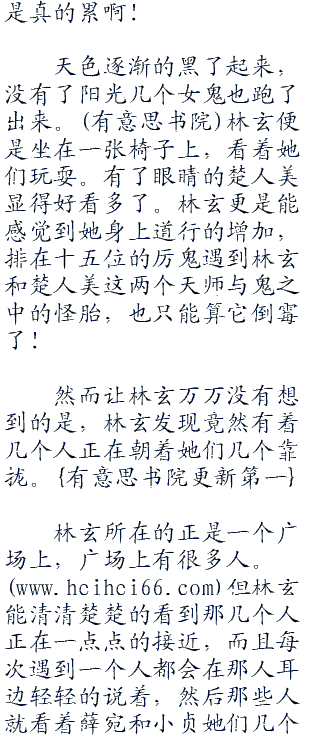 是真的累啊！
天色逐渐的黑了起来，
没有了阳光几个女鬼也跑了
出来。(有意思书院)林玄便
是坐在一张椅子上，看着她
们玩耍。有了眼睛的楚人美
显得好看多了。林玄更是能
感觉到她身上道行的增加，
排在十五位的厉鬼遇到林玄
和楚人美这两个天师与鬼之
中的怪胎，也只能算它倒霉
了！
然而让林玄万万没有想
到的是，林玄发现竟然有着
几个人正在朝着她们几个靠
拢。{有意思书院更新第一}
林玄所在的正是一个广
场上，广场上有很多人。
(www.hcihci66.com)但林玄
能清清楚楚的看到那几个人
正在一点点的接近，而且每
次遇到一个人都会在那人耳
边轻轻的说着，然后那些人
就看着薛宛和小贞她们几个